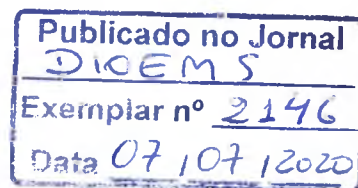 Publicado no Jornal
DIOEMS
Exemplar nº 2146
Data 07 / 07 / 2020